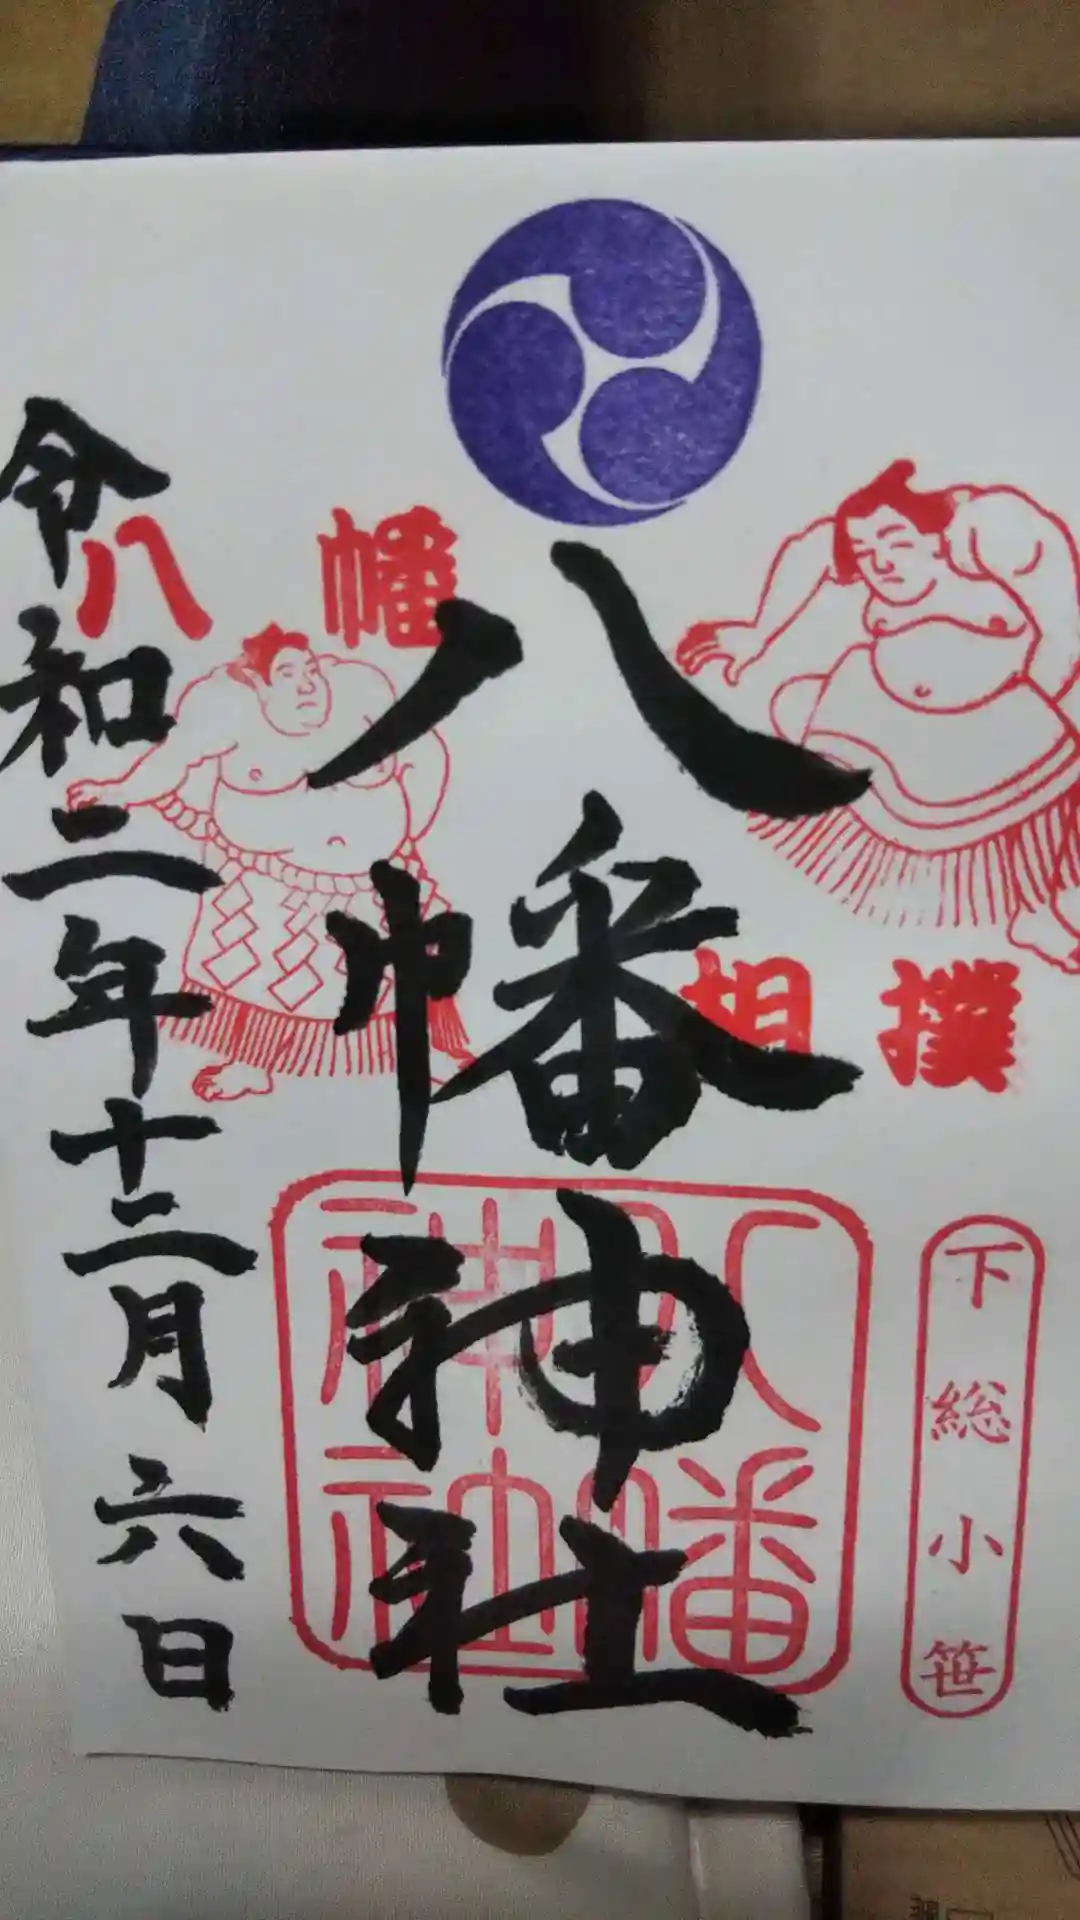 下総小笹
八幡神社
八幡相撲
八幡神社
令和二年十二月六日